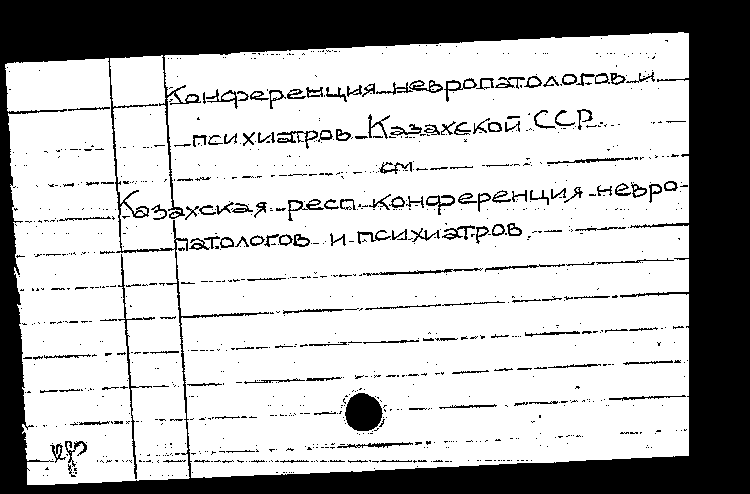 Конференция невропатологов и
психиатров Казахской ССР.
см.
Казахская респ. конференция невро-
патологов и психиатров.